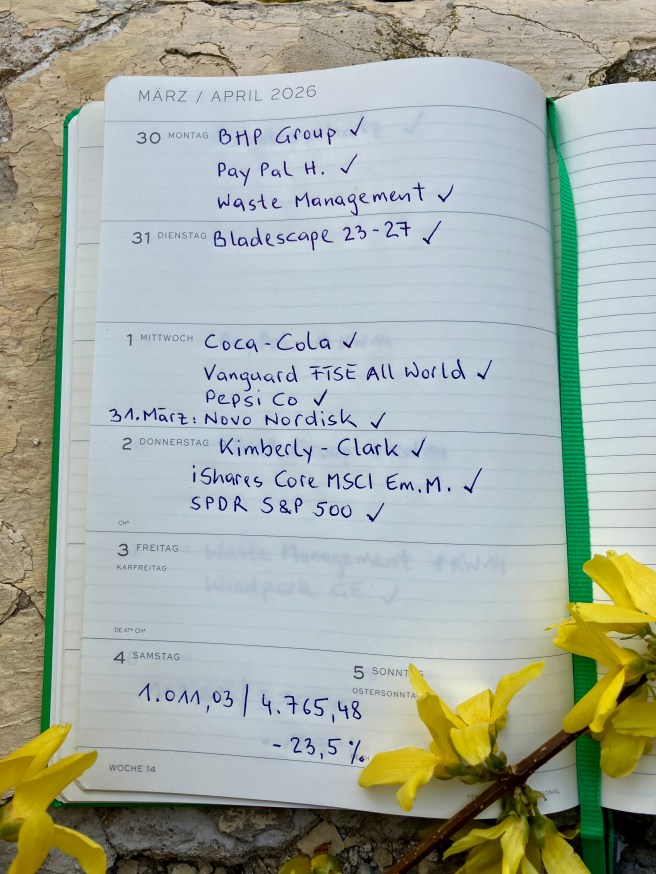 MÄRZ / APRIL 2026
30 MONTAG BHP Group ✓
Pay Pal H. ✓
Waste Management ✓
31 DIENSTAG Bladescape 23-27 ✓
1 MITTWOCH Coca-Cola ✓
Vanguard FTSE All World ✓
Pepsi Co ✓
31. März: Novo Nordisk ✓
2 DONNERSTAG Kimberly-Clark ✓
iShares Core MSCI Em.M. ✓
SPDR S&P 500 ✓
CH*
3 FREITAG
KARFREITAG
Waste Management
Windpark GE ✓
DE AT* CH*
4 SAMSTAG
5 SONNT
OSTERSONNTA
1.011,03 | 4.765,48
- 23,5 %
WOCHE 14